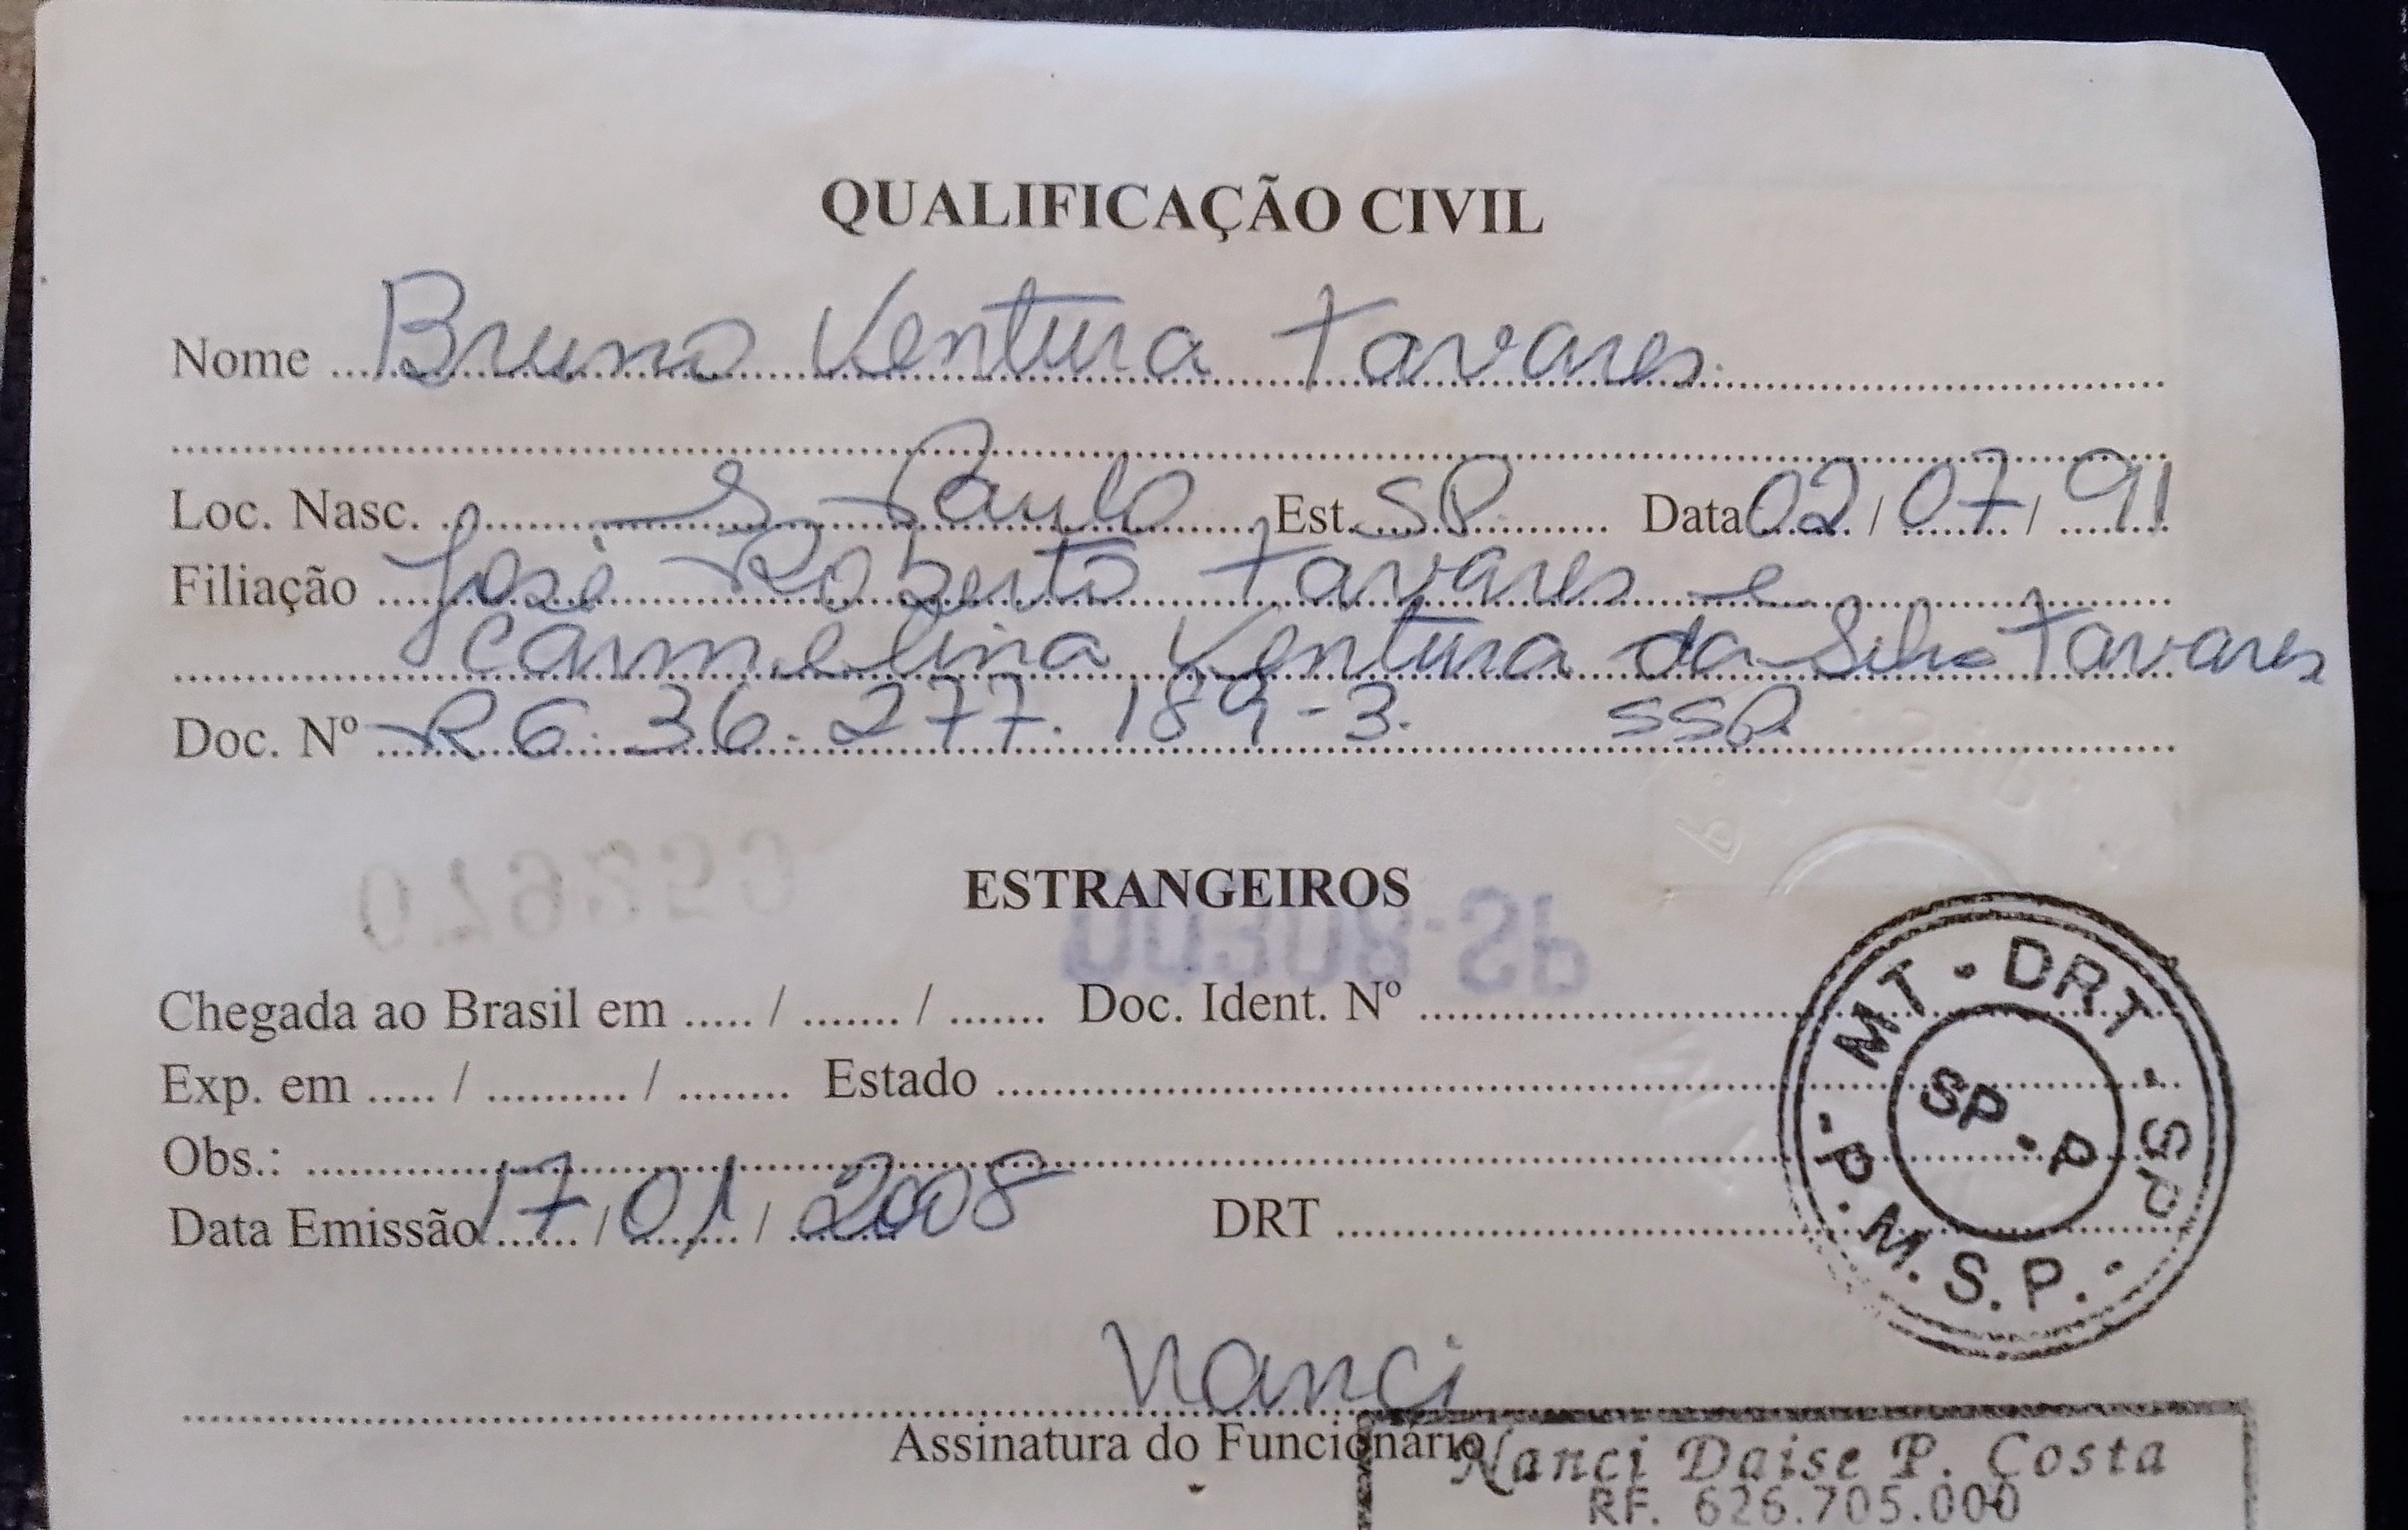 QUALIFICAÇÃO CIVIL
Nome Bruno Ventura Tavares
Loc. Nasc. S. Paulo Est. SP Data 02 / 07 / 91
Filiação José Roberto Tavares e
Carmelina Ventura da Silva Tavares
Doc. Nº RG. 36.277.189-3. SSP
ESTRANGEIROS
Chegada ao Brasil em ..... / ....... / ....... Doc. Ident. Nº
Exp. em ..... / .......... / ........ Estado
Obs.:
Data Emissão 17 / 01 / 2008 DRT
MT - DRT - SP - P.M.S.P. -
SP - P
Nanci
Assinatura do Funcionário
Nanci Daise P. Costa
RF. 626.705.000